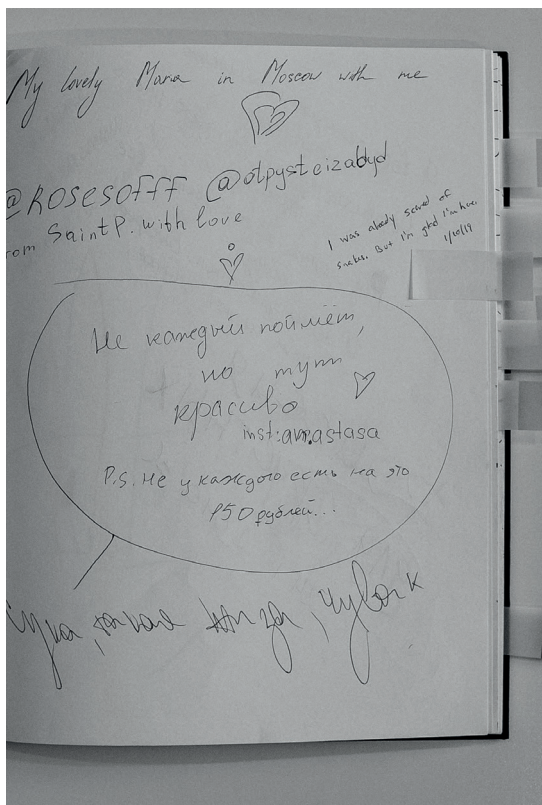 My lovely Mama in Moscow with me
@ROSESOFFF @otpysteizadyd
rom Saint P. with love
I was already scared of
snakes. But I'm glad I'm here.
1/10/19
Не каждый поймёт,
но тут
красиво
inst: anastasa
P.S. Не у каждого есть на это
150 рублей...
Сука, такая жиза, чувак